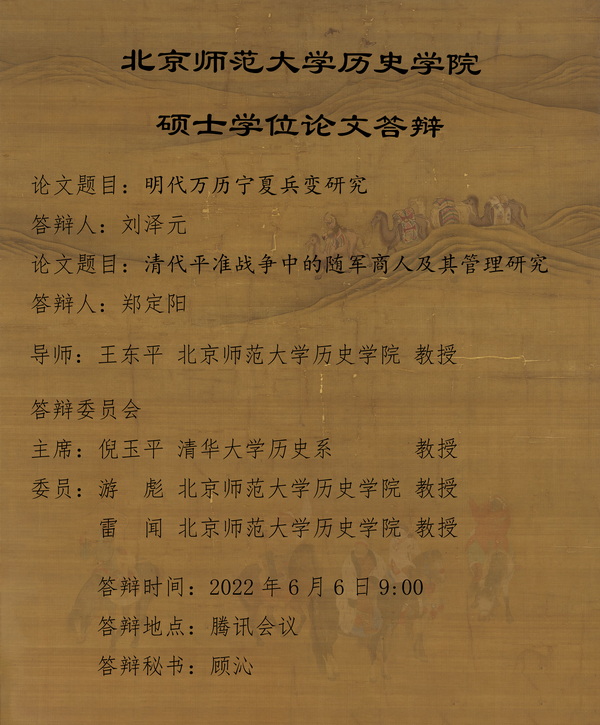 北京师范大学历史学院
硕士学位论文答辩
论文题目：明代万历宁夏兵变研究
答辩人：刘泽元
论文题目：清代平准战争中的随军商人及其管理研究
答辩人：郑定阳
导师：王东平 北京师范大学历史学院 教授
答辩委员会
主席：倪玉平 清华大学历史系 教授
委员：游 彪 北京师范大学历史学院 教授
雷 闻 北京师范大学历史学院 教授
答辩时间：2022年6月6日9:00
答辩地点：腾讯会议
答辩秘书：顾沁